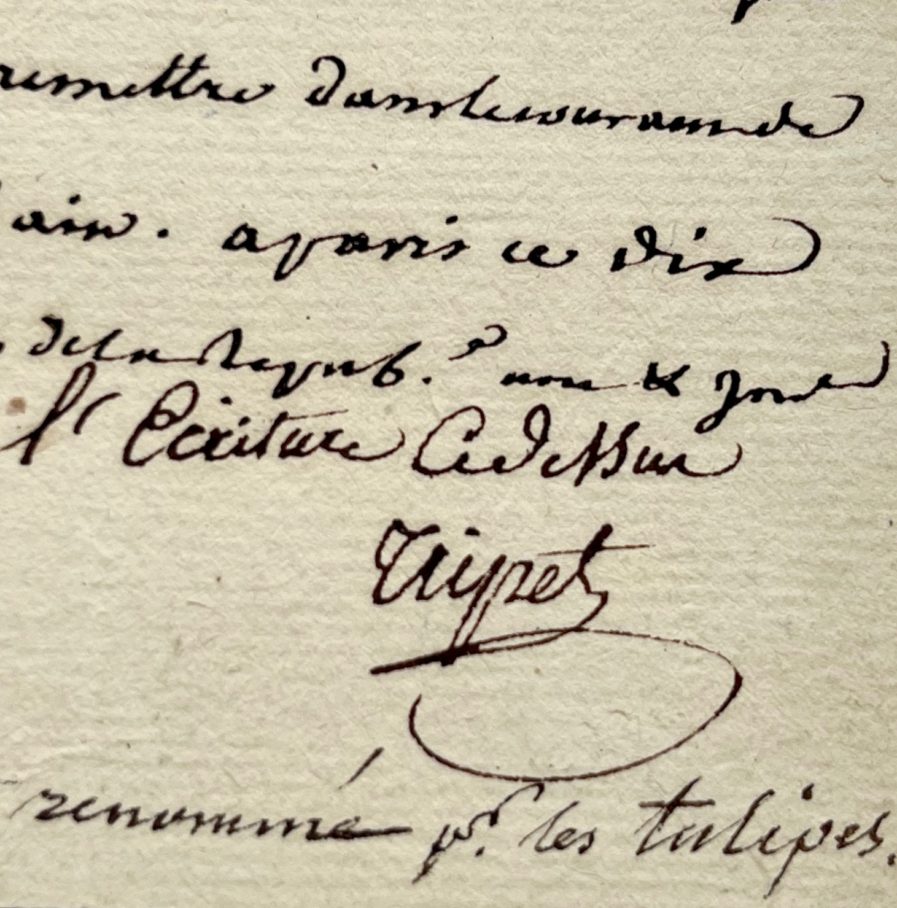 remettre dans le courann de
ain. a paris ce dix
de la Repub.e une &
l' Ecriture Cy dessus
Tripet
renommé pr. les tulipes.